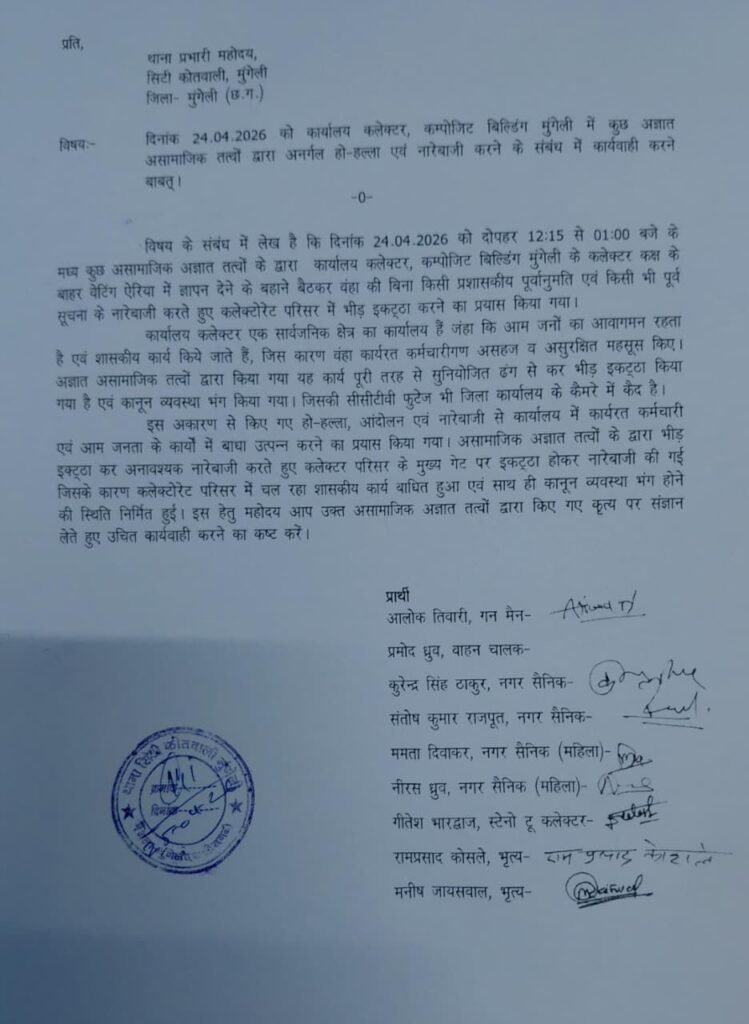 प्रति,
थाना प्रभारी महोदय,
सिटी कोतवाली, मुंगेली
जिला- मुंगेली (छ.ग.)
विषयः- दिनांक 24.04.2026 को कार्यालय कलेक्टर, कम्पोजिट बिल्डिंग मुंगेली में कुछ अज्ञात
असामाजिक तत्वों द्वारा अनर्गल हो-हल्ला एवं नारेबाजी करने के संबंध में कार्यवाही करने
बाबत्।
-0-
विषय के संबंध में लेख है कि दिनांक 24.04.2026 को दोपहर 12:15 से 01:00 बजे के
मध्य कुछ असामाजिक अज्ञात तत्वों के द्वारा कार्यालय कलेक्टर, कम्पोजिट बिल्डिंग मुंगेली के कलेक्टर कक्ष के
बाहर वेटिंग ऐरिया में ज्ञापन देने के बहाने बैठकर वंहा की बिना किसी प्रशासकीय पूर्वानुमति एवं किसी भी पूर्व
सूचना के नारेबाजी करते हुए कलेक्टोरेट परिसर में भीड़ इकट्ठा करने का प्रयास किया गया।
कार्यालय कलेक्टर एक सार्वजनिक क्षेत्र का कार्यालय हैं जंहा कि आम जनों का आवागमन रहता
है एवं शासकीय कार्य किये जाते हैं, जिस कारण वंहा कार्यरत कर्मचारीगण असहज व असुरक्षित महसूस किए।
अज्ञात असामाजिक तत्वों द्वारा किया गया यह कार्य पूरी तरह से सुनियोजित ढंग से कर भीड़ इकट्ठा किया
गया है एवं कानून व्यवस्था भंग किया गया। जिसकी सीसीटीवी फुटेज भी जिला कार्यालय के कैमरे में कैद है।
इस अकारण से किए गए हो-हल्ला, आंदोलन एवं नारेबाजी से कार्यालय में कार्यरत कर्मचारी
एवं आम जनता के कार्यो में बाधा उत्पन्न करने का प्रयास किया गया। असामाजिक अज्ञात तत्वों के द्वारा भीड़
इक्ट्ठा कर अनावश्यक नारेबाजी करते हुए कलेक्टर परिसर के मुख्य गेट पर इकट्ठा होकर नारेबाजी की गई
जिसके कारण कलेक्टोरेट परिसर में चल रहा शासकीय कार्य बाधित हुआ एवं साथ ही कानून व्यवस्था भंग होने
की स्थिति निर्मित हुई। इस हेतु महोदय आप उक्त असामाजिक अज्ञात तत्वों द्वारा किए गए कृत्य पर संज्ञान
लेते हुए उचित कार्यवाही करने का कष्ट करें।
प्रार्थी
आलोक तिवारी, गन मैन-
प्रमोद ध्रुव, वाहन चालक-
कुरेन्द्र सिंह ठाकुर, नगर सैनिक-
संतोष कुमार राजपूत, नगर सैनिक-
ममता दिवाकर, नगर सैनिक (महिला)-
नीरस ध्रुव, नगर सैनिक (महिला)-
गीतेश भारद्वाज, स्टेनो टू कलेक्टर-
रामप्रसाद कोसले, भृत्य- राम प्रसाद कोशले
मनीष जायसवाल, भृत्य-
थाना सिटी कोतवाली मुंगेली
क्रमांक
दिनांक